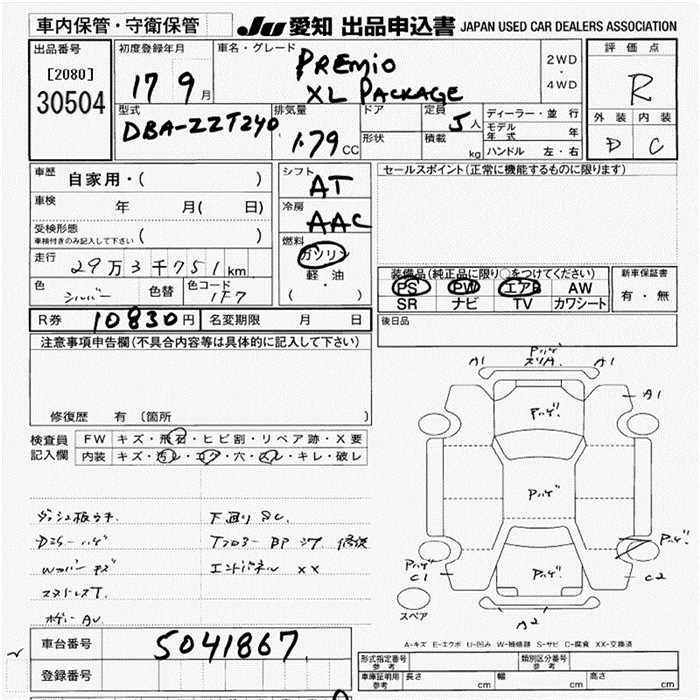 車内保管・守衛保管
JU 愛知 出品申込書 JAPAN USED CAR DEALERS ASSOCIATION
出品番号
[2080]
30504
初度登録年月
17 9月
車名・グレード
PREMIO
XL PACKAGE
2WD
・
4WD
評価点
R
外装 内装
D C
型式
DBA-ZZT240
排気量
1.79 CC
ドア
形状
定員
5人
積載
kg
ディーラー・並行
モデル年式 年
ハンドル 左・右
車歴 自家用・( )
車検 年 月( 日)
受検形態
車検付きのみ記入して下さい ( )
走行
29万3千751km
色 シルバー 色替 色コード 1F7
シフト
AT
冷房
AAC
燃料
ガソリン
軽・油
( )
セールスポイント(正常に機能するものに限ります)
装備品(純正品に限り○をつけてください)
PS PW エアB AW
SR ナビ TV カワシート
新車保証書
有・無
R券 10830円 名変期限 月 日
後日品
注意事項申告欄(不具合内容等は具体的に記入して下さい)
修復歴 有 〔箇所
検査員
記入欄
FW キズ・飛石・ヒビ割・リペア跡・X要
内装 キズ・汚レ・コゲ・穴・スレ・キレ・破レ
ダッシュ板ウキ 下廻りSC
Dミラーハゲ
Wカバーキズ エンドパネル XX
スタッドレスT
ボディーAU
A1 Pハゲ A1
A1
Pハゲ
Pハゲ
Pハゲ
Pハゲ
Pハゲ
C1
C2
A2
スペア
A-キズ E-エクボ U-凹み W-補修跡 S-サビ C-腐食 XX-交換済
車台番号 5041867
登録番号
形式指定番号 参考
類別区分番号 参考
車庫証明用 参考 長さ cm 幅 cm 高さ cm